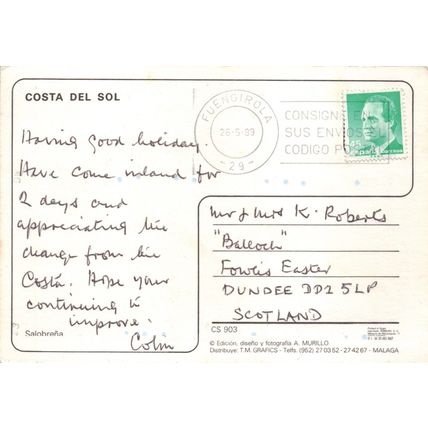 COSTA DEL SOL
FUENGIROLA
26-5-89
-29-
CONSIGNE E
SUS ENVIOS EL
CODIGO PO
Having good holiday.
Have come inland for
2 days and
appreciating the
change from the
Costa. Hope your
continuing to
improve.
Colin
Salobreña
Mr & Mrs K. Roberts
"Balloch"
Fowlis Easter
DUNDEE DD2 5LP
SCOTLAND
CS 903
© Edición, diseño y fotografía A. MURILLO
Distribuye: T.M. GRAFICS - Telfs. (952) 27 03 52 - 27 42 67 - MALAGA